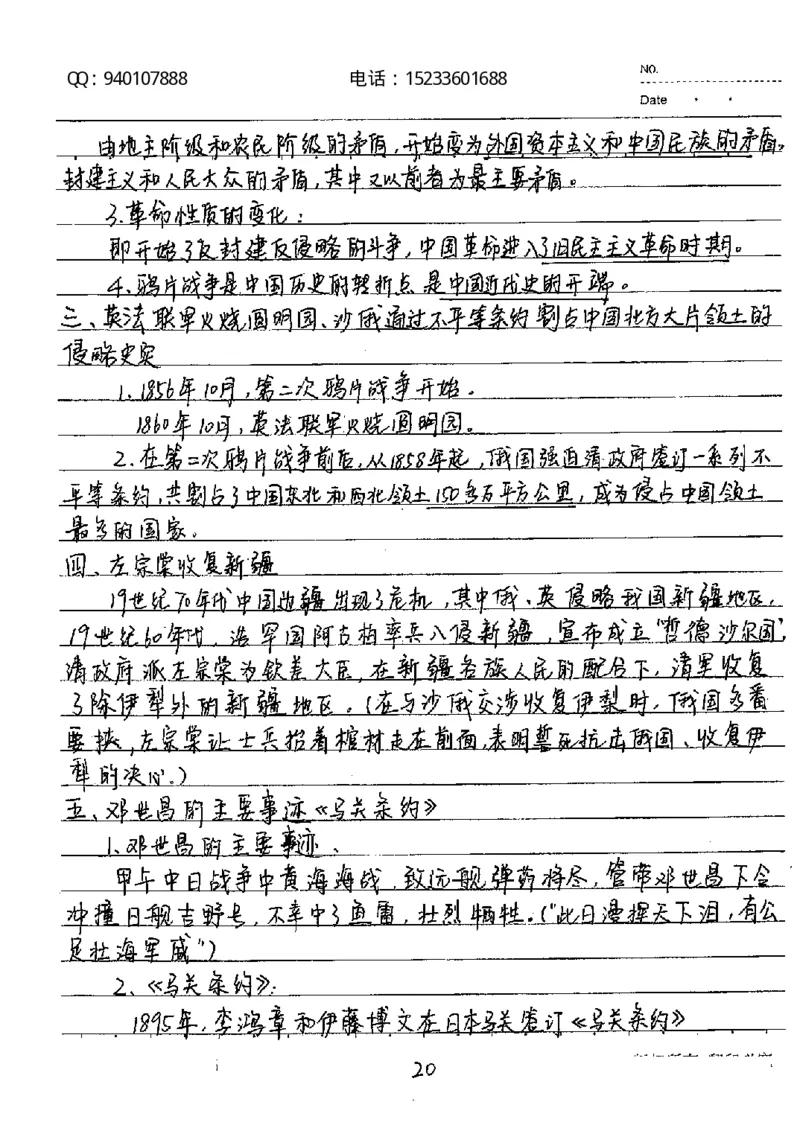 QQ：940107888 电话：15233601688 NO.
Date
由地主阶级和农民阶级的矛盾，开始变为外国资本主义和中国民族的矛盾。
封建主义和人民大众的矛盾，其中又以前者为最主要矛盾。
3.革命性质的变化：
即开始了反封建反侵略的斗争，中国革命进入了旧民主主义革命时期。
4、鸦片战争是中国历史的转折点 是中国近代史的开端。
三、英法联军火烧圆明园、沙俄通过不平等条约割占中国北方大片领土的
侵略史实
1、1856年10月，第二次鸦片战争开始。
1860年10月，英法联军火烧圆明园。
2.在第二次鸦片战争前后，从1858年起，俄国强迫清政府签订一系列不
平等条约，共割占了中国东北和西北领土150多万平方公里，成为侵占中国领土
最多的国家。
四、左宗棠收复新疆
19世纪70年代中国边疆出现了危机，其中俄、英侵略我国新疆地区，
19世纪60年代，浩罕国阿古柏率兵入侵新疆，宣布成立“哲德沙尔国”，
清政府派左宗棠为钦差大臣，在新疆各族人民的配合下，清军收复
了除伊犁外的新疆地区。（在与沙俄交涉收复伊犁时，俄国多番
要挟，左宗棠让士兵抬着棺材走在前面，表明誓死抗击俄国、收复伊
犁的决心。）
五、邓世昌的主要事迹《马关条约》
1、邓世昌的主要事迹、
甲午中日战争中黄海海战，致远舰弹药将尽，管带邓世昌下令
冲撞日舰吉野号，不幸中了鱼雷，壮烈牺牲。（“此日漫挥天下泪，有公
足壮海军威”）
2、《马关条约》：
1895年，李鸿章和伊藤博文在日本马关签订《马关条约》
20